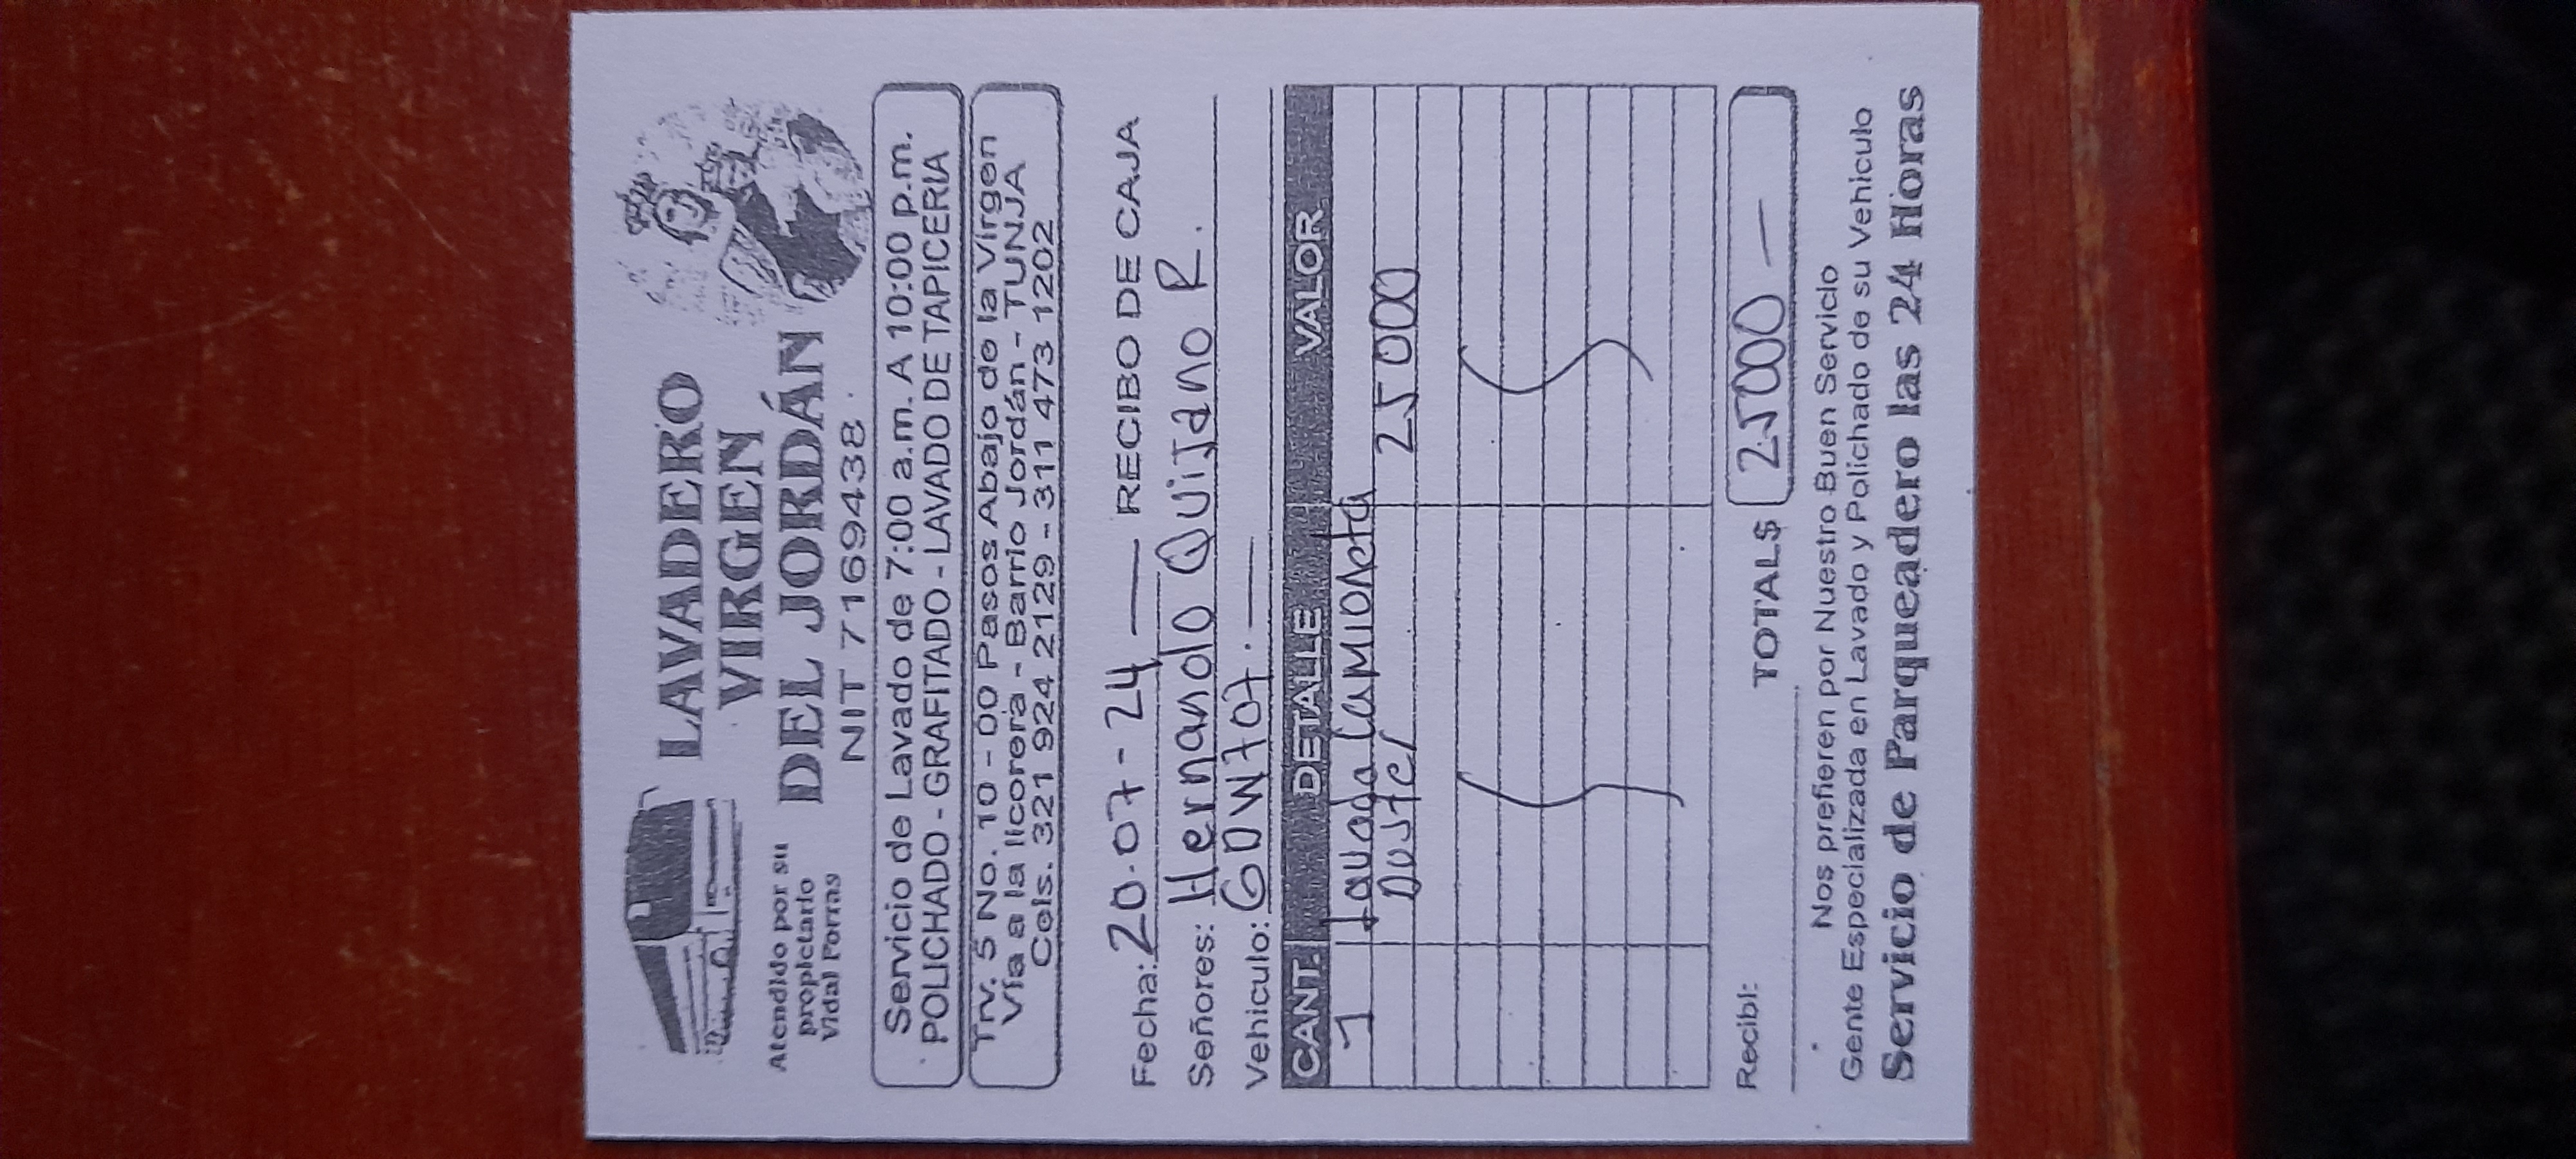 LAVADERO
VIRGEN
DEL JORDÁN
NIT 7169438
Atendido por su
propietario
Vidal Porras
Servicio de Lavado de 7:00 a.m. A 10:00 p.m.
POLICHADO - GRAFITADO - LAVADO DE TAPICERIA
Trv. 5 No. 10 - 00 Pasos Abajo de la Virgen
Vía a la licorera - Barrio Jordán - TUNJA
Cels. 321 924 2129 - 311 473 1202
Fecha: 20-07-24 — RECIBO DE CAJA
Señores: Hernando Quijano R.
Vehiculo: GDW707. —
CANT. DETALLE VALOR
1 lavada Camioneta
Duster 25000
TOTAL$ 25000 —
Recibí:
Nos prefieren por Nuestro Buen Servicio
Gente Especializada en Lavado y Polichado de su Vehiculo
Servicio de Parqueadero las 24 Horas